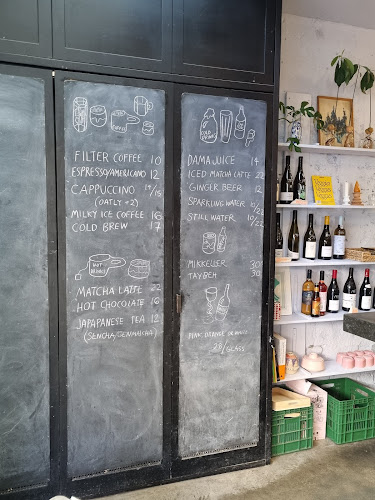 FILTER COFFEE 10
ESPRESSO/AMERICANO 12
CAPPUCCINO 14/15
(OATLY +2)
MILKY ICE COFFEE 16
COLD BREW 17
HOT DRINKS
MATCHA LATTE 22
HOT CHOCOLATE 16
JAPAPANESE TEA 12
(SENCHA, GENMAICHA)
COLD DRINK
DAMA JUICE 14
ICED MATCHA LATTE 22
GINGER BEER 12
SPARKLING WATER 10/22
STILL WATER 10/22
MIKKELLER 30
TAYBEH 30
PINK ORANGE OR WHITE
28/GLASS